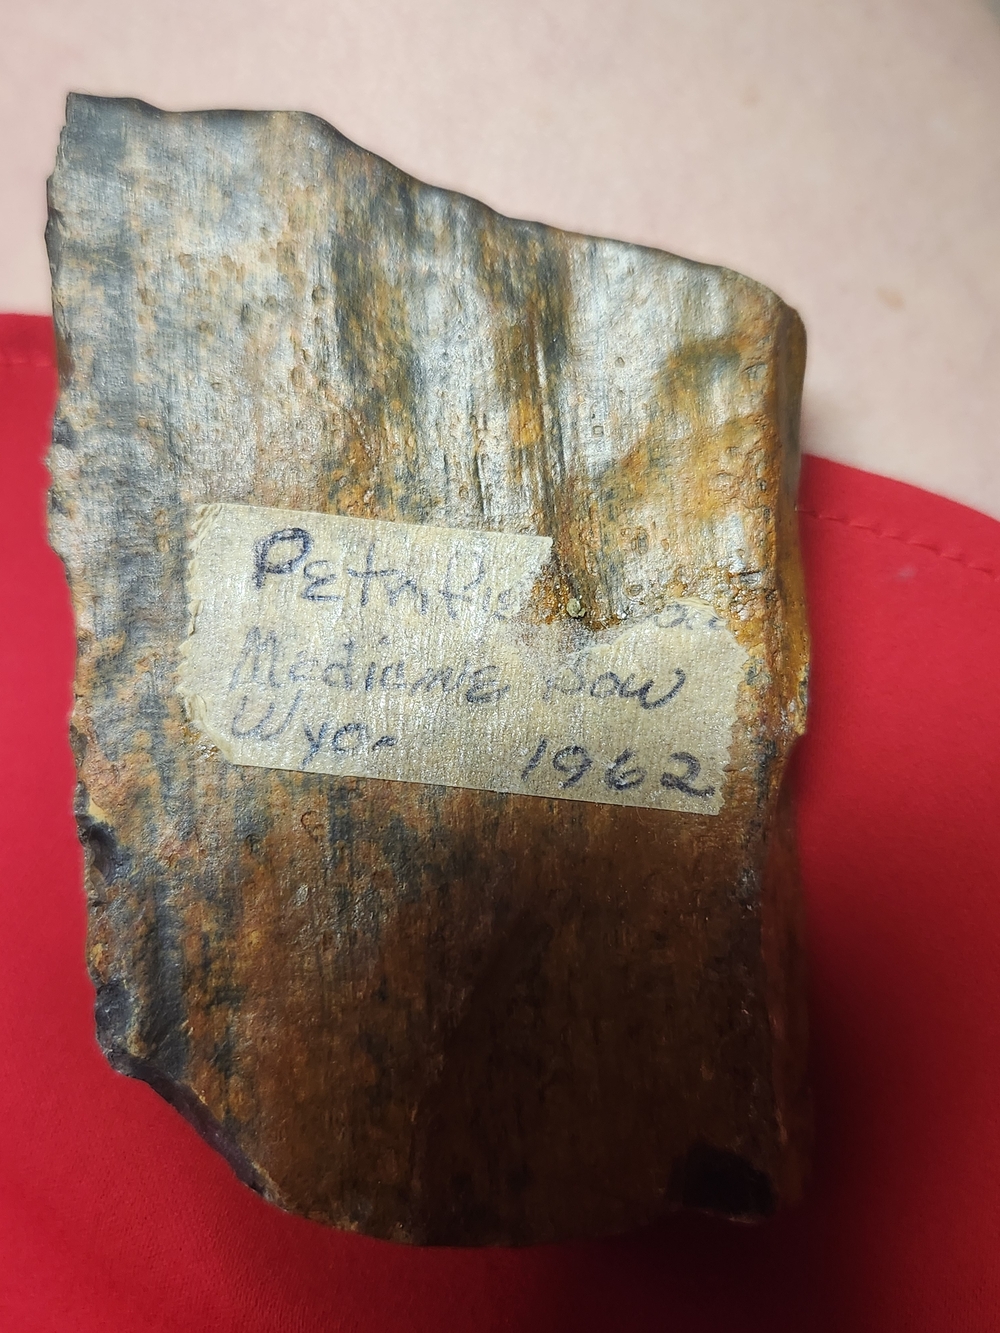 Petrifie
Medicine Bow
Wyo. 1962